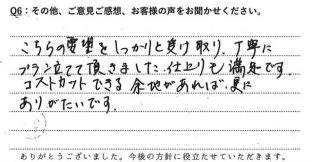 Q6：その他、ご意見ご感想、お客様の声をお聞かせください。
こちらの要望をしっかりと受け取り、丁寧に
プラン立てて頂きました。仕上りも満足です。
コストカットできる余地があれば、更に
ありがたいです。
ありがとうございました。今後の方針に役立たせていただきます。